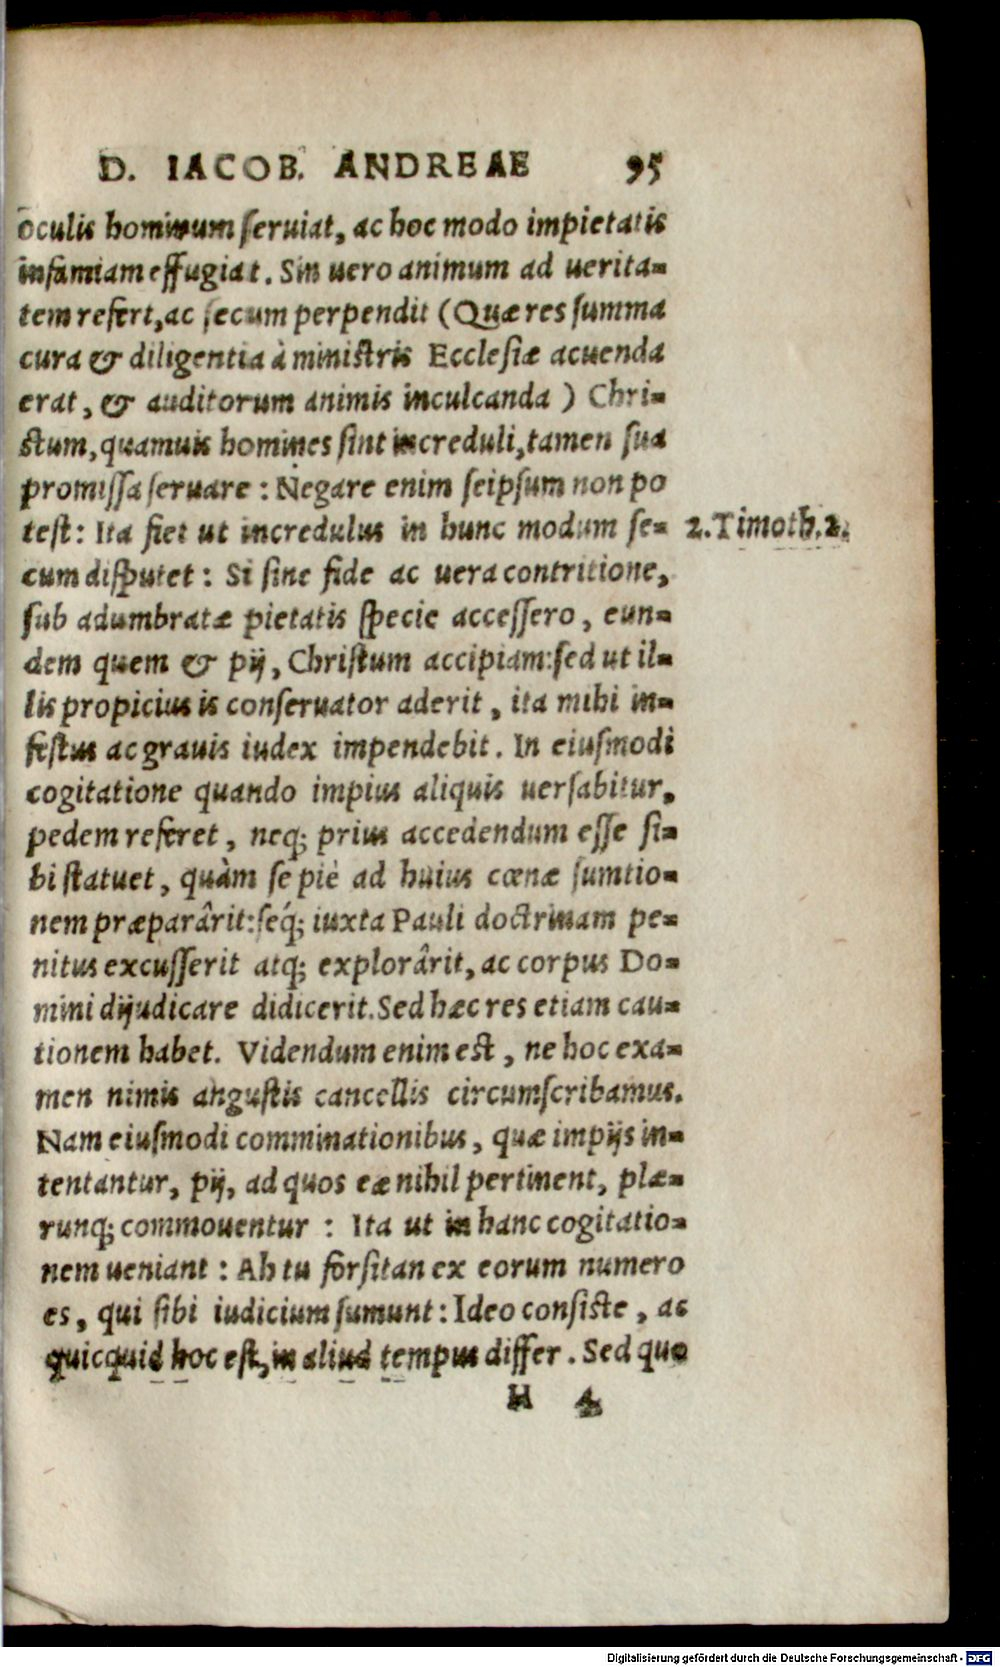 D. IACOB. ANDREAE 95
oculis hominum seruiat, ac hoc modo impietatis
infamiam effugiat. Sin uero animum ad uerita-
tem refert, ac secum perpendit (Quæ res summa
cura & diligentia à ministris Ecclesiæ acuenda
erat, & auditorum animis inculcanda) Chri-
stum, quamuis homines sint increduli, tamen sua
promissa seruare: Negare enim seipsum non po
test: Ita fiet ut incredulus in hunc modum se-
2. Timoth. 2.
cum disputet: Si sine fide ac uera contritione,
sub adumbratæ pietatis specie accessero, eun-
dem quem & pij, Christum accipiam: sed ut il-
lis propicius is conseruator aderit, ita mihi in-
festus ac grauis iudex impendebit. In eiusmodi
cogitatione quando impius aliquis uersabitur,
pedem referet, neq; prius accedendum esse si-
bi statuet, quàm se piè ad huius cœnæ sumtio-
nem præparârit: seq́; iuxta Pauli doctrinam pe-
nitus excusserit atq; explorârit, ac corpus Do-
mini dijudicare didicerit. Sed hæc res etiam cau-
tionem habet. Videndum enim est, ne hoc exa-
men nimis angustis cancellis circumscribamus.
Nam eiusmodi comminationibus, quæ impijs in-
tentantur, pij, ad quos eæ nihil pertinent, plæ-
runq; commouentur: Ita ut in hanc cogitatio-
nem ueniant: Ah tu forsitan ex eorum numero
es, qui sibi iudicium sumunt: Ideo consiste, ac
quicquid hoc est, in aliud tempus differ. Sed quo
H 4
Digitalisierung gefördert durch die Deutsche Forschungsgemeinschaft - DFG